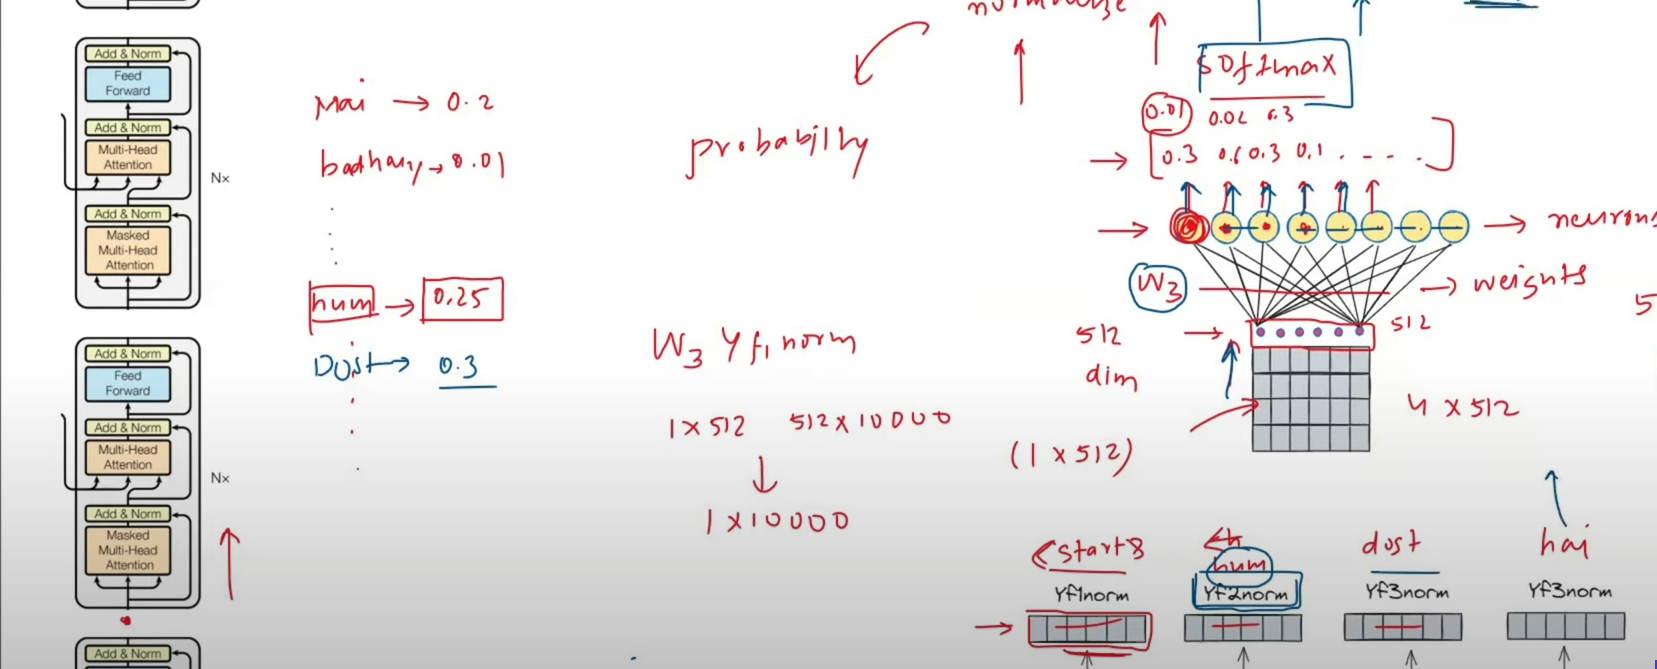 Add & Norm
Feed
Forward
Add & Norm
Multi-Head
Attention
Nx
Add & Norm
Masked
Multi-Head
Attention
Add & Norm
Feed
Forward
Add & Norm
Multi-Head
Attention
Nx
Add & Norm
Masked
Multi-Head
Attention
Add & Norm
Mai → 0.2
→ 0.01
hum → 0.25
Dost → 0.3
normalize
probability
W3 Yf1 norm
1 x 512 512 x 10000
1 x 10000
softmax
0.01 0.02 0.3
[0.3 0.6 0.3 0.1 . - - .]
→ neurons
W3 → weights
5
512
dim
512
4 x 512
(1 x 512)
hum dost hai
Yf1norm Yf2norm Yf3norm Yf3norm